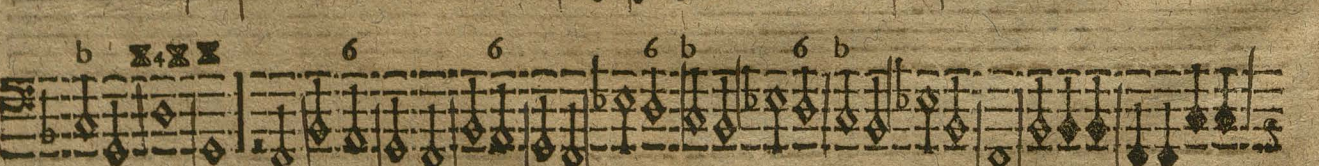 b 4 6 6 6 b 6 b